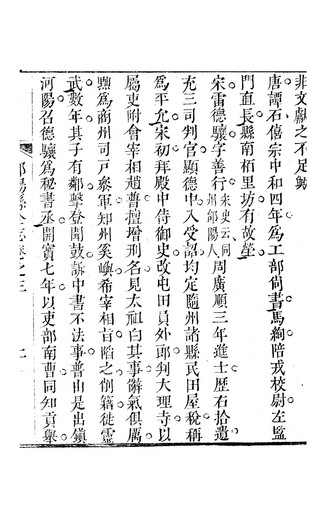 非文獻之不足歟
唐譚石僖宗中和四年爲工部尙書馬絢陪戎校尉左監
門直長縣南栢里坊有故塋
宋雷德驤字善行宋史云同州郃陽人周廣順三年進士歷右拾遺
充三司判官顯德中入受詔均定隨州諸縣民田屋稅稱
爲平允宋初拜殿中侍御史改屯田員外郎判大理寺以
屬吏附會宰相趙普擅增刑名見太祖白其事辭氣俱厲
黜爲商州司戶叅軍知州奚嶼希宰相旨䧟之削籍徙靈
武數年其子有鄰擊登聞鼓訴中書不法事普由是出鎭
河陽召德驤爲秘書丞開寶七年以吏部南曹同知貢舉
郃陽縣全志卷之三